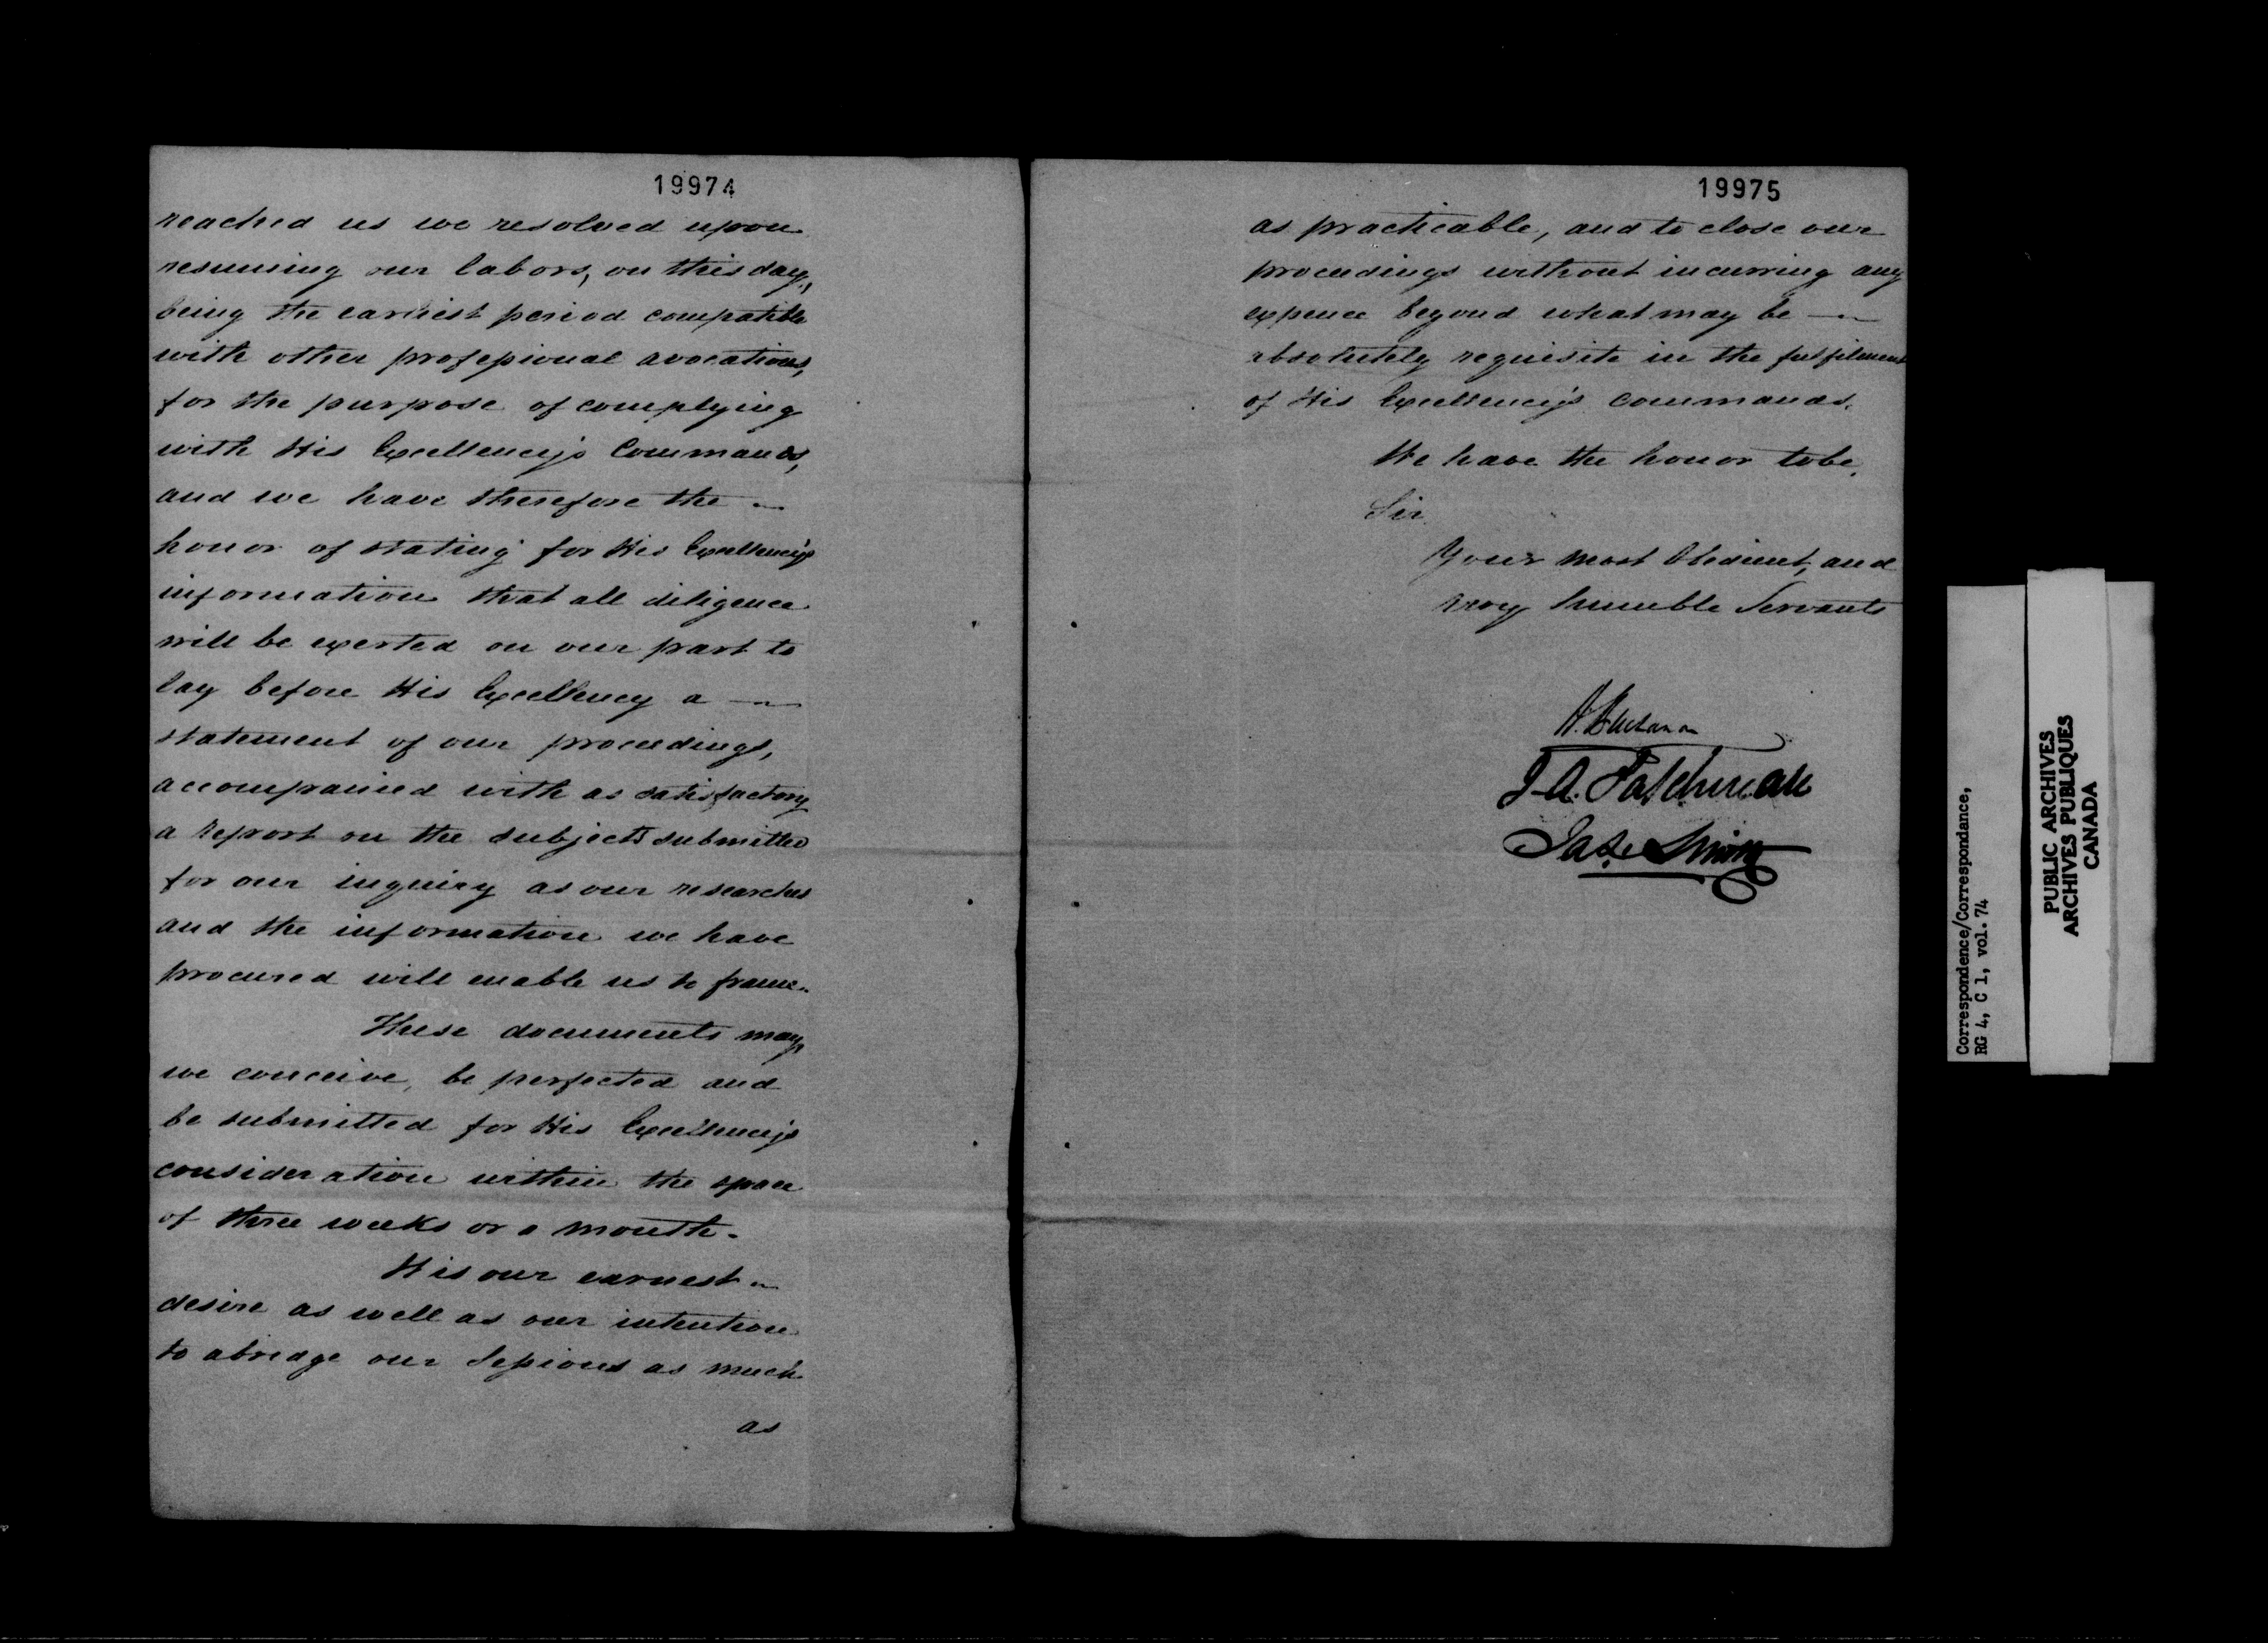 19974
reached us we resolved upon
resuming our labors, on this day,
being the earliest period compatible
with other professional avocations,
for the purpose of complying
with His Excellency's Commands,
and we have therefore the
honor of stating for His Excellency's
information that all diligence
will be exerted on our part to
lay before His Excellency a
statement of our proceedings,
accompanied with as satisfactory
a report on the subjects submitted
for our inquiry as our researches
and the information we have
procured will enable us to frame.
These documents may,
we conceive, be perfected and
be submitted for His Excellency's
consideration within the space
of three weeks or a month.
It is our earnest
desire as well as our intention
to abridge our Sessions as much
as
19975
as practicable, and to close our
proceedings without incurring any
expence beyond what may be
absolutely requisite in the fulfilment
of His Excellency's Commands.
We have the honor to be,
Sir
Your most Obedient, and
very humble Servants
A. Buchanan
J. A. Taschereau
Jas. Smith
Correspondence/Correspondance,
RG 4, C 1, vol. 74
PUBLIC ARCHIVES
ARCHIVES PUBLIQUES
CANADA